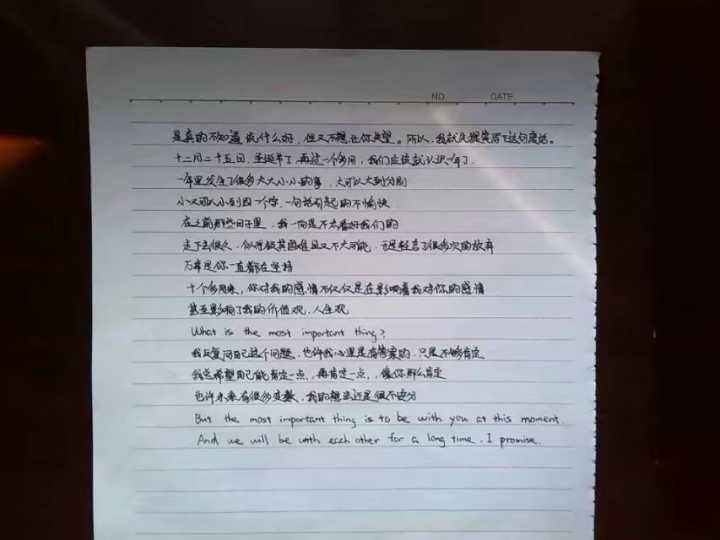 NO.
DATE.
是真的不知道说什么好，但又不想让你失望。所以，我就只提笔写下这句废话。
十二月二十五日，圣诞节了，再过一个多月，我们应该就认识一年了。
一年里发生了很多大大小小的事，大可以大到分别
小又可以小到因一个字，一句话引起的不愉快
在之前那些日子里，我一向是不太看好我们的
走下去很久，似乎极其困难且又不大可能，可是轻言了很多次的放弃
万幸是你一直都在坚持
十个多月来，你对我的感情不仅仅是在影响着我对你的感情
甚至影响了我的价值观，人生观
What is the most important thing?
我反复问自己这个问题，也许我心里是有答案的，只是不够肯定
我总希望自己能肯定一点，再肯定一点，像你那么肯定
也许未来有很多变数，我的想法还是很不成
But the most important thing is to be with you at this moment.
And we will be with each other for a long time. I promise.